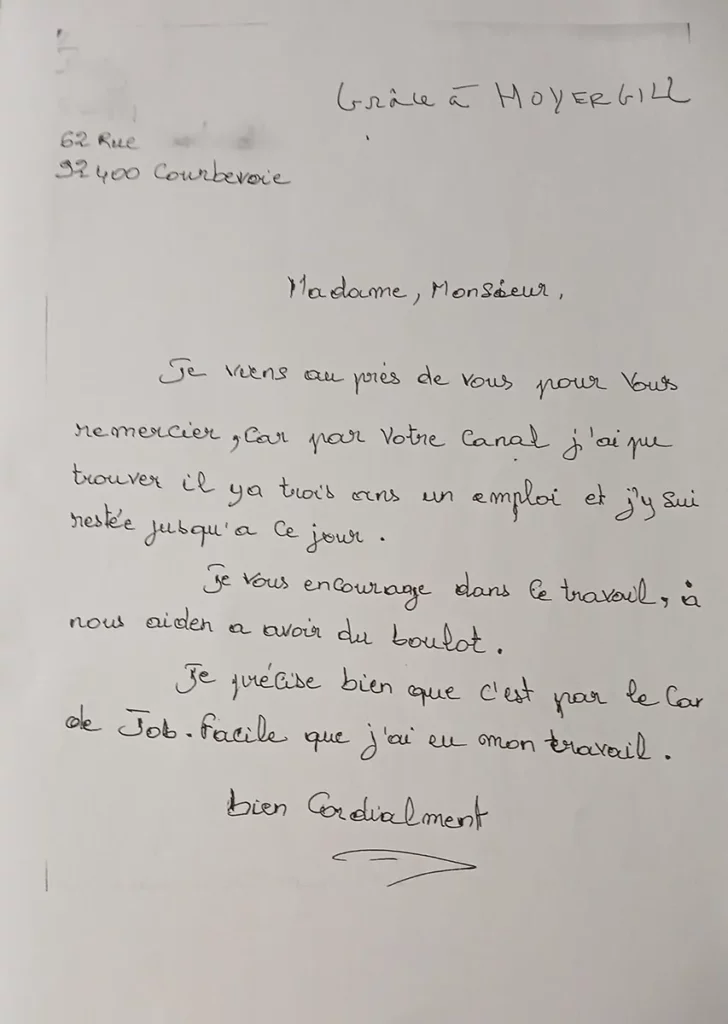 Grâce à MOYERGILL
62 Rue
92400 Courbevoie
Madame, Monsieur,
Je viens au près de vous pour Vous
remercier, Car par Votre Canal j'ai pu
trouver il ya trois ans un emploi et j'y sui
restée jusqu'a Ce jour.
Je vous encourage dans Ce travail, à
nous aider a avoir du boulot.
Je précise bien que c'est par le Car
de Job.facile que j'ai eu mon travail.
bien Cordialment